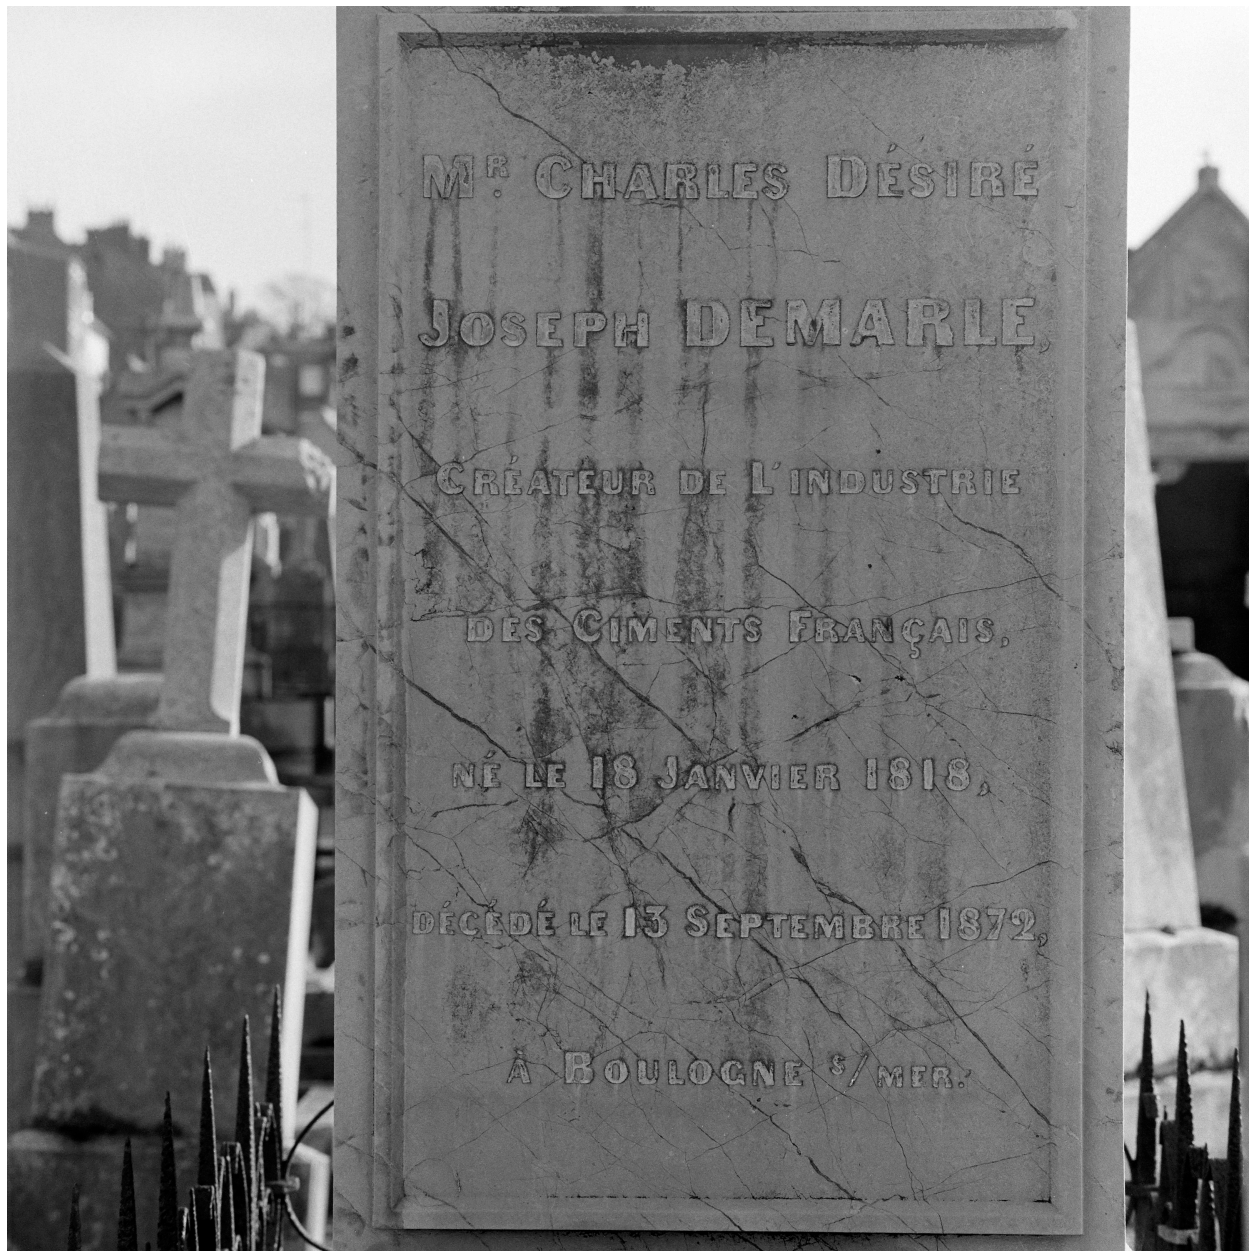 Mr. CHARLES DÉSIRÉ
JOSEPH DEMARLE,
CRÉATEUR DE L'INDUSTRIE
DES CIMENTS FRANÇAIS,
NÉ LE 18 JANVIER 1818,
DÉCÉDÉ LE 13 SEPTEMBRE 1872,
À BOULOGNE S/MER.